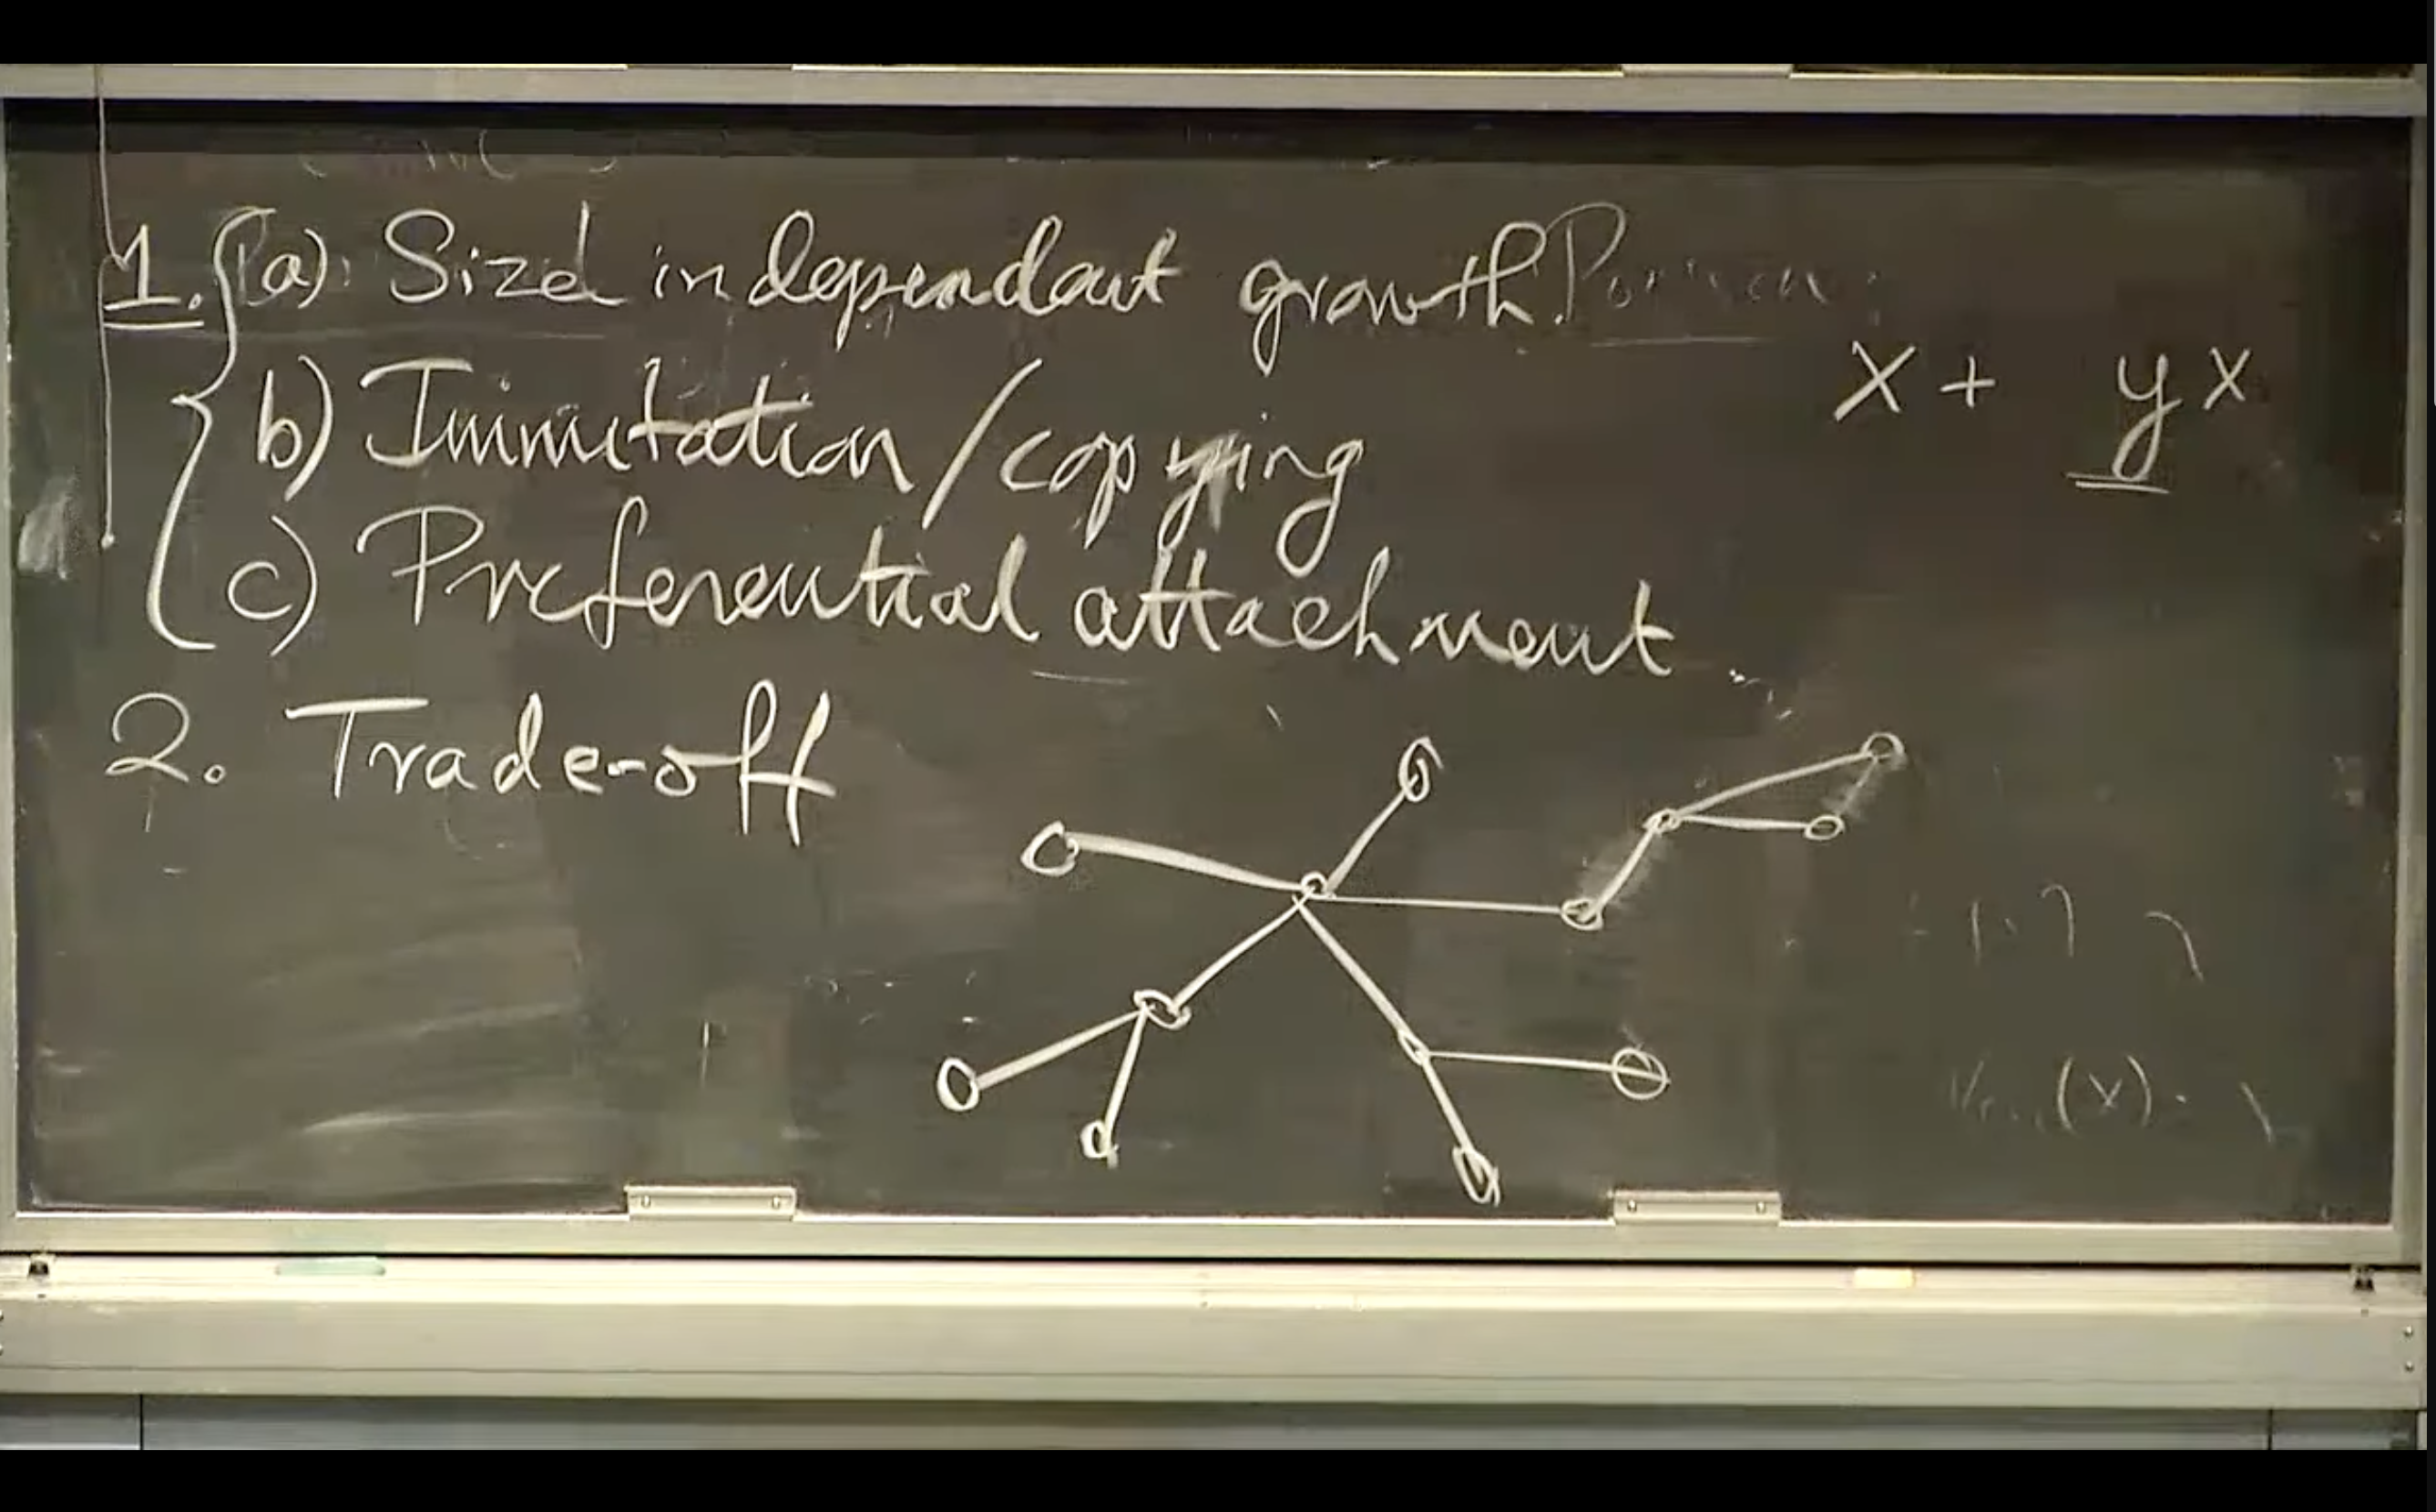 1. (a). Size independent growth.
b) Immitation/copying
X + yx
c) Preferential attachment
2. Trade-off
(x)